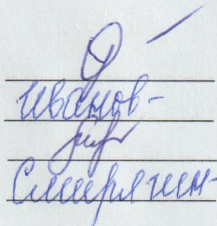 Иванов-
Смирягин-